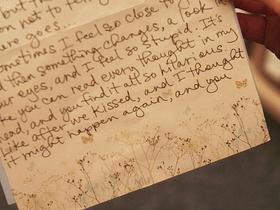 on not to ten
are goes.
ometimes I feel so close to
d then something changes, a look in
our eyes, and I feel so stupid. It's
ke you can read every thought in my
head, and you find it all so hilarious.
Like after we kissed, and I thought
it might happen again, and you